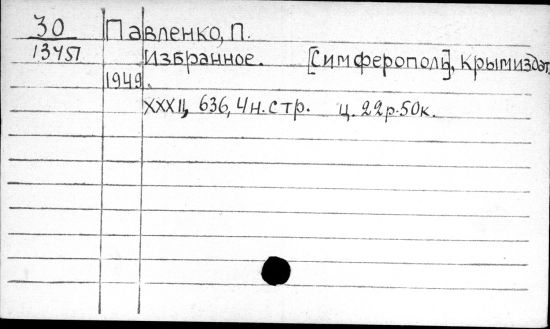 30 Павленко, П.
13451 Избранное. [Симферополь], Крымиздат,
1949.
XXXII, 636, 4 н. стр. ц. 22 р. 50 к.